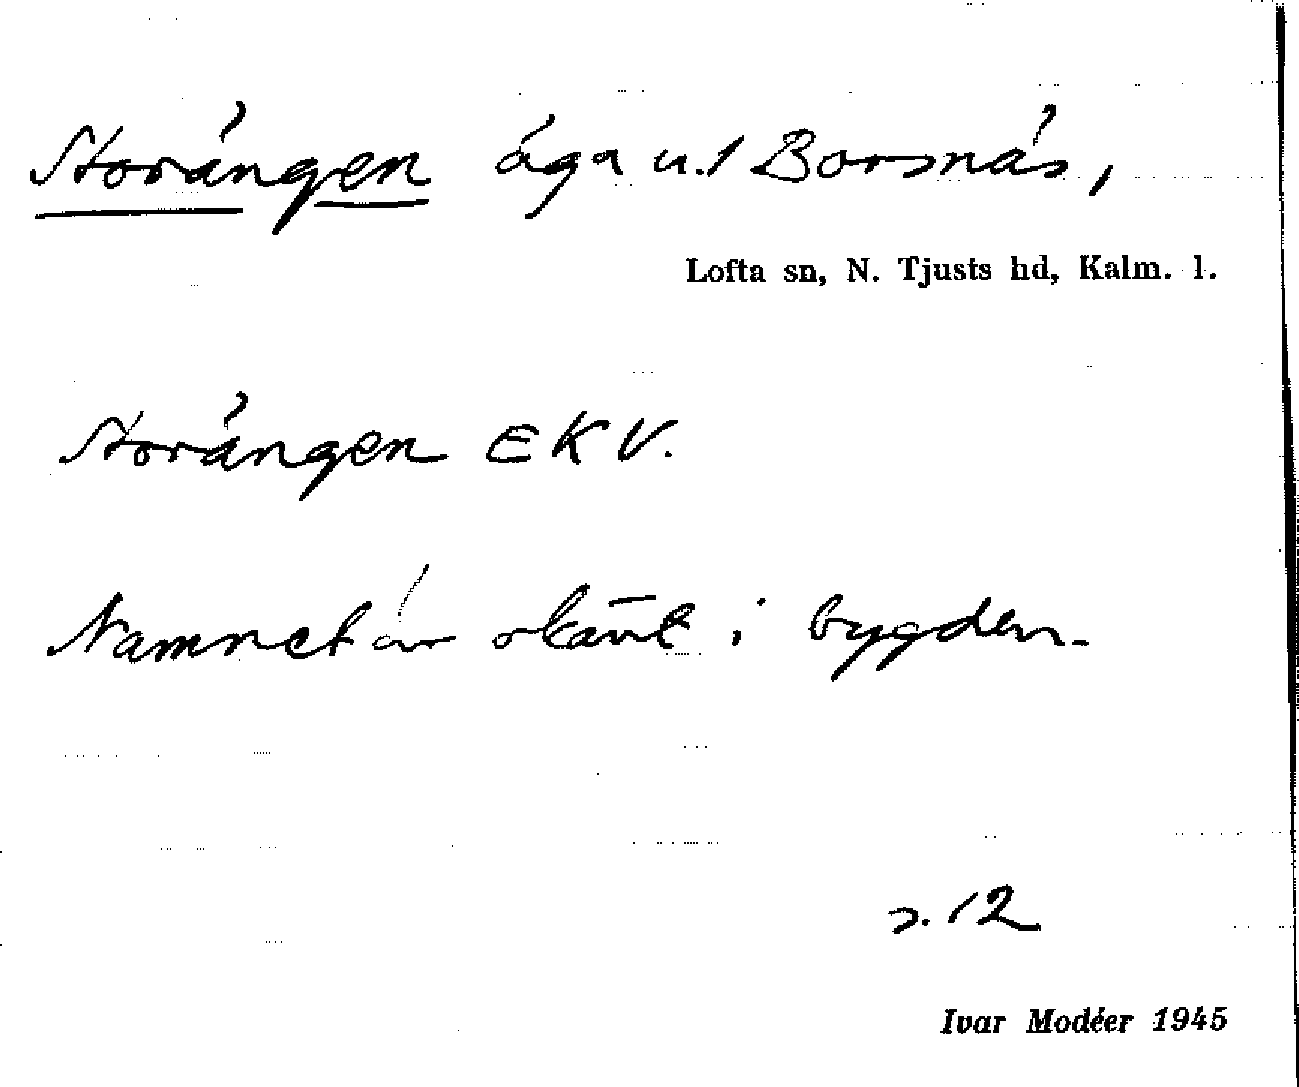 Storängen äga u./ Borsnäs,
Lofta sn, N. Tjusts hd, Kalm. l.
Storängen EKV.
Namnet är okänt i bygden.
s. 12
Ivar Modéer 1945